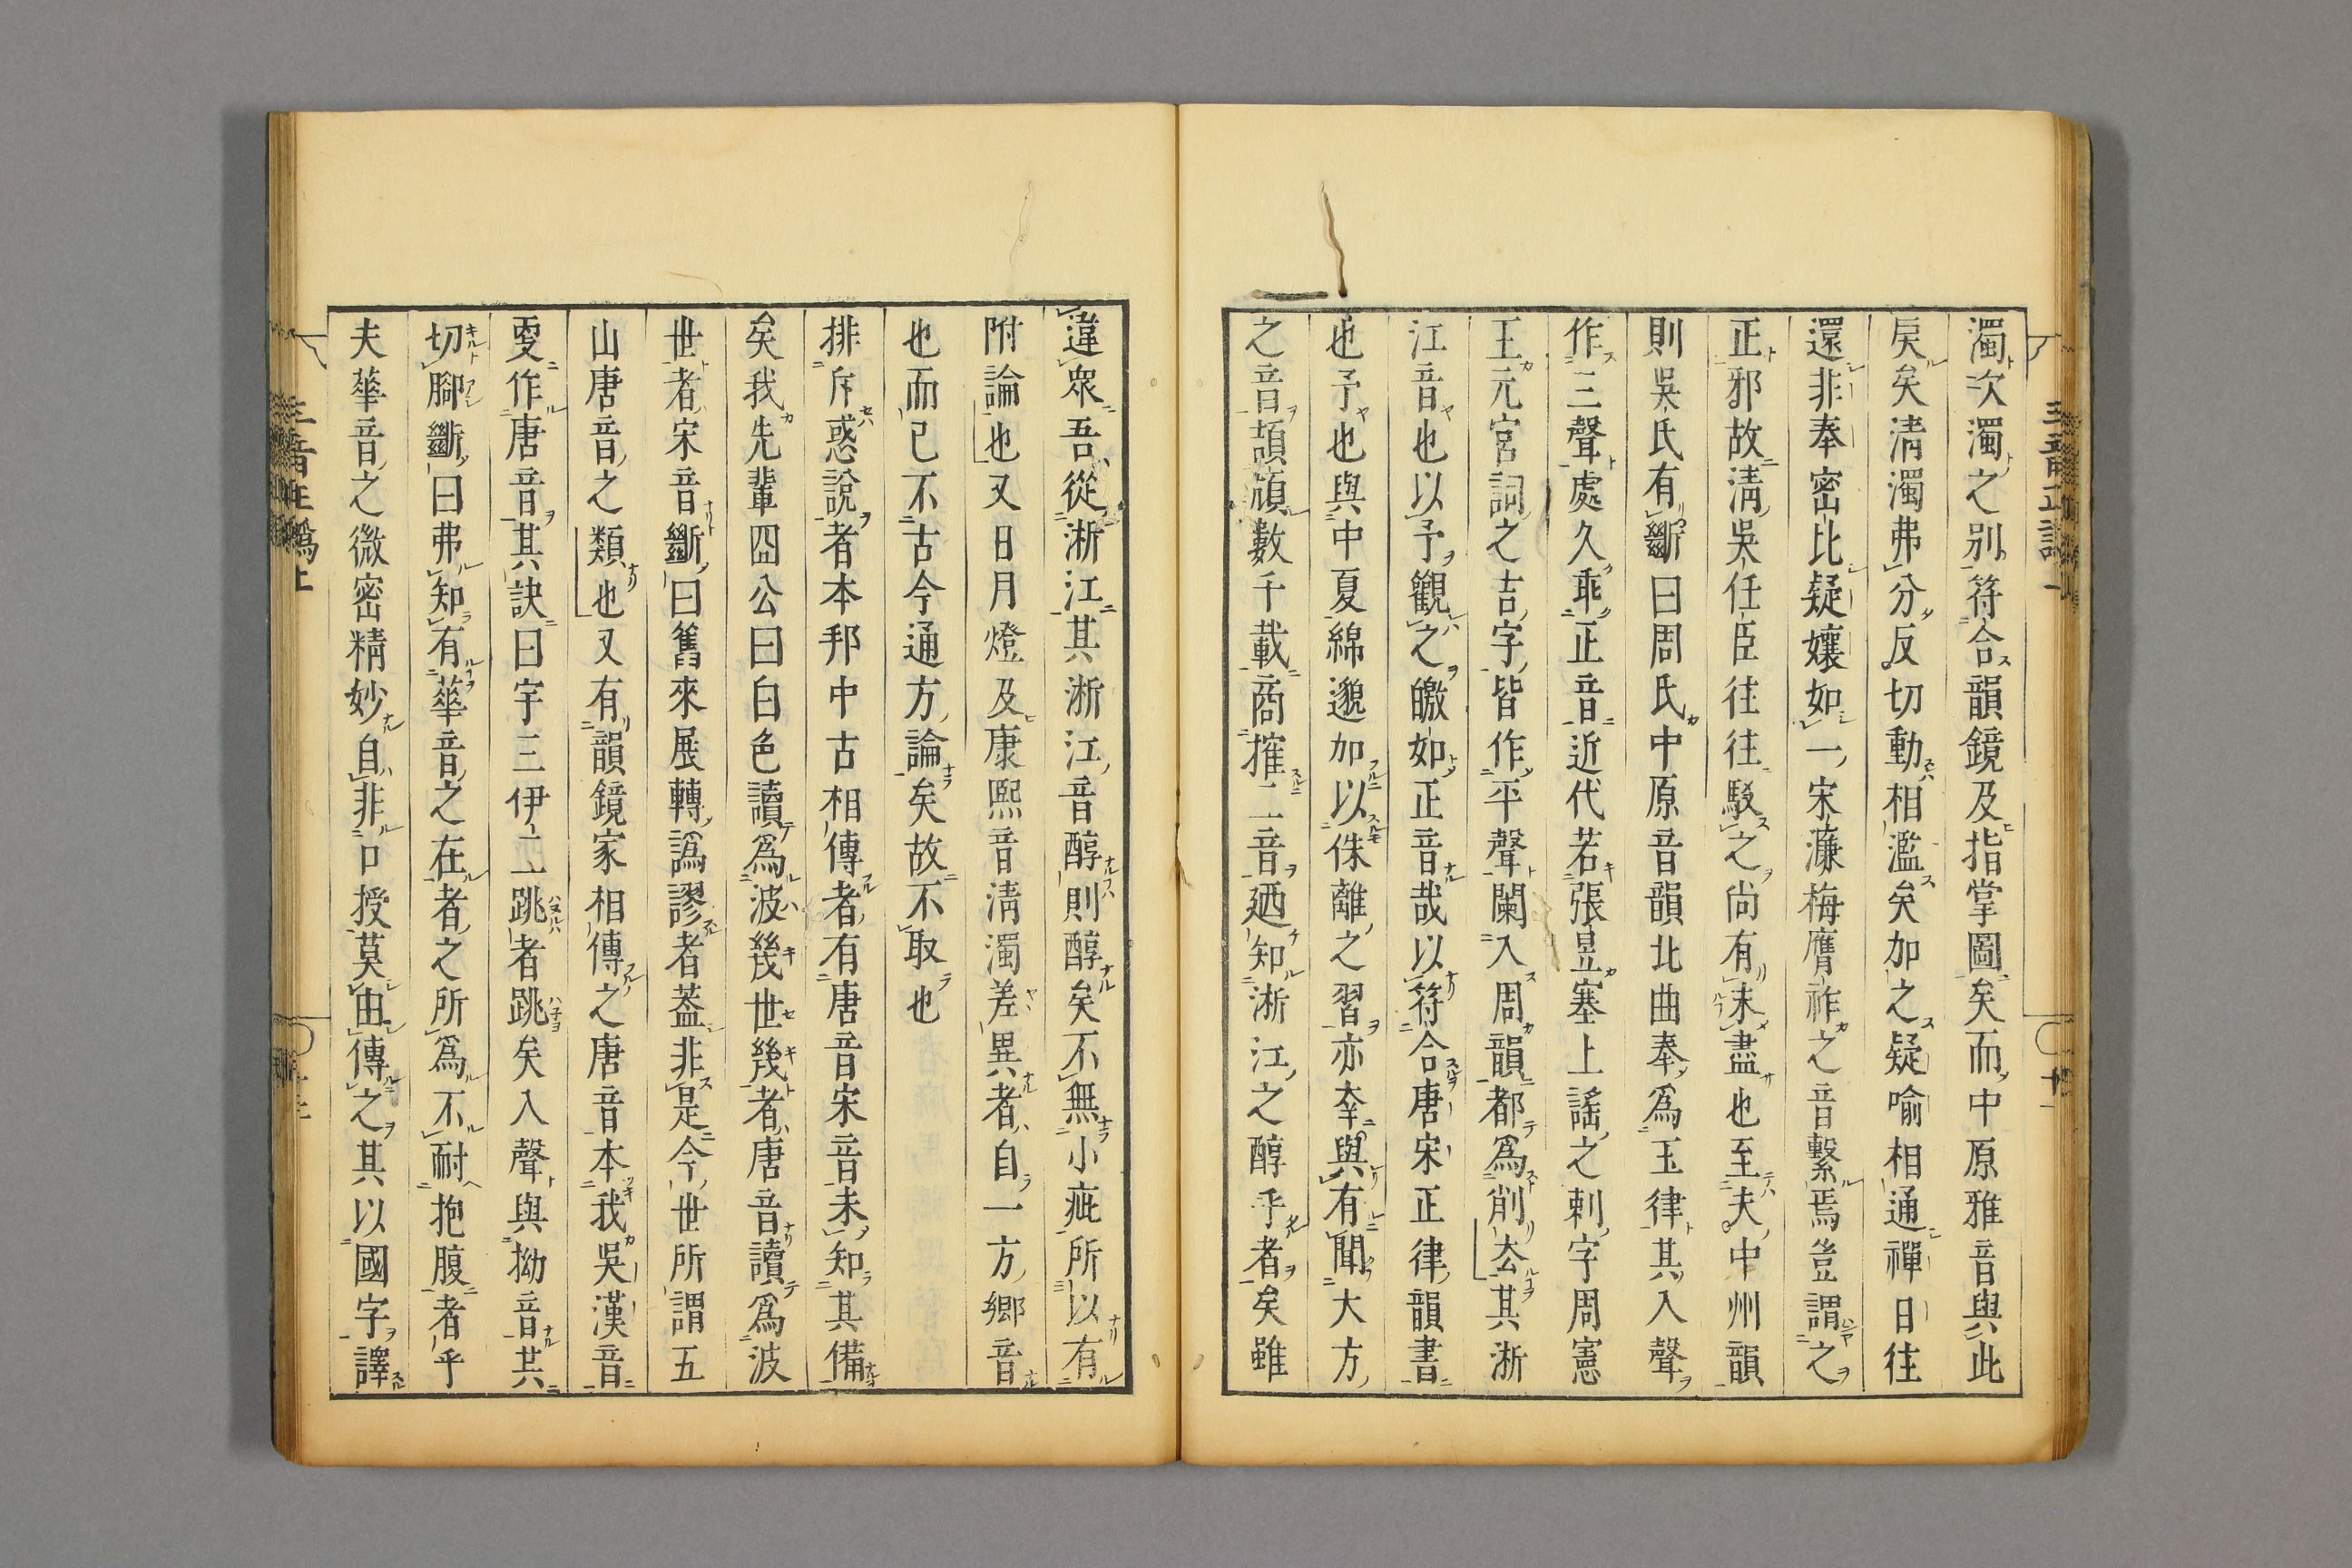 濁次濁之別符合韻鏡及指掌圖矣而中原雅音與此
戾矣淸濁弗分反切動相濫矣加之疑喻相通禪日往
還非奉密比疑孃如一宋濂梅膺祚之音繫焉豈謂之
正邪故淸吳任臣往往駁之尙有未盡也至夫中州韻
則吳氏有斷曰周氏中原音韻北曲奉爲玉律其入聲
作三聲處久乖正音近代若張昱塞上謠之剌字周憲
王元宮詞之吉字皆作平聲闌入周韻都爲削去其浙
江音也以予觀之皦如正音哉以符合唐宋正律韻書
也予也與中夏綿邈加以侏離之習亦幸與有聞大方
之音頡頏數千載商搉二音廼知浙江之醇乎者矣雖
違衆吾從浙江其浙江音醇則醇矣不無小疵所以有
附論也又日月燈及康熙音淸濁差異者自一方鄉音
也而已不古今通方論矣故不取也
排斥惑說者本邦中古相傳者有唐音宋音未知其備
矣我先輩囧公曰白色讀爲波幾世幾者唐音讀爲波
世者宋音斷曰舊來展轉譌謬者蓋非是今世所謂五
山唐音之類也又有韻鏡家相傳之唐音本我吳漢音
更作唐音其訣曰宇三伊二一跳者跳矣入聲與拗音其
切腳斷曰弗知有華音之在者之所爲不耐抱腹者乎
夫華音之微密精妙自非口授莫由傳之其以國字譯